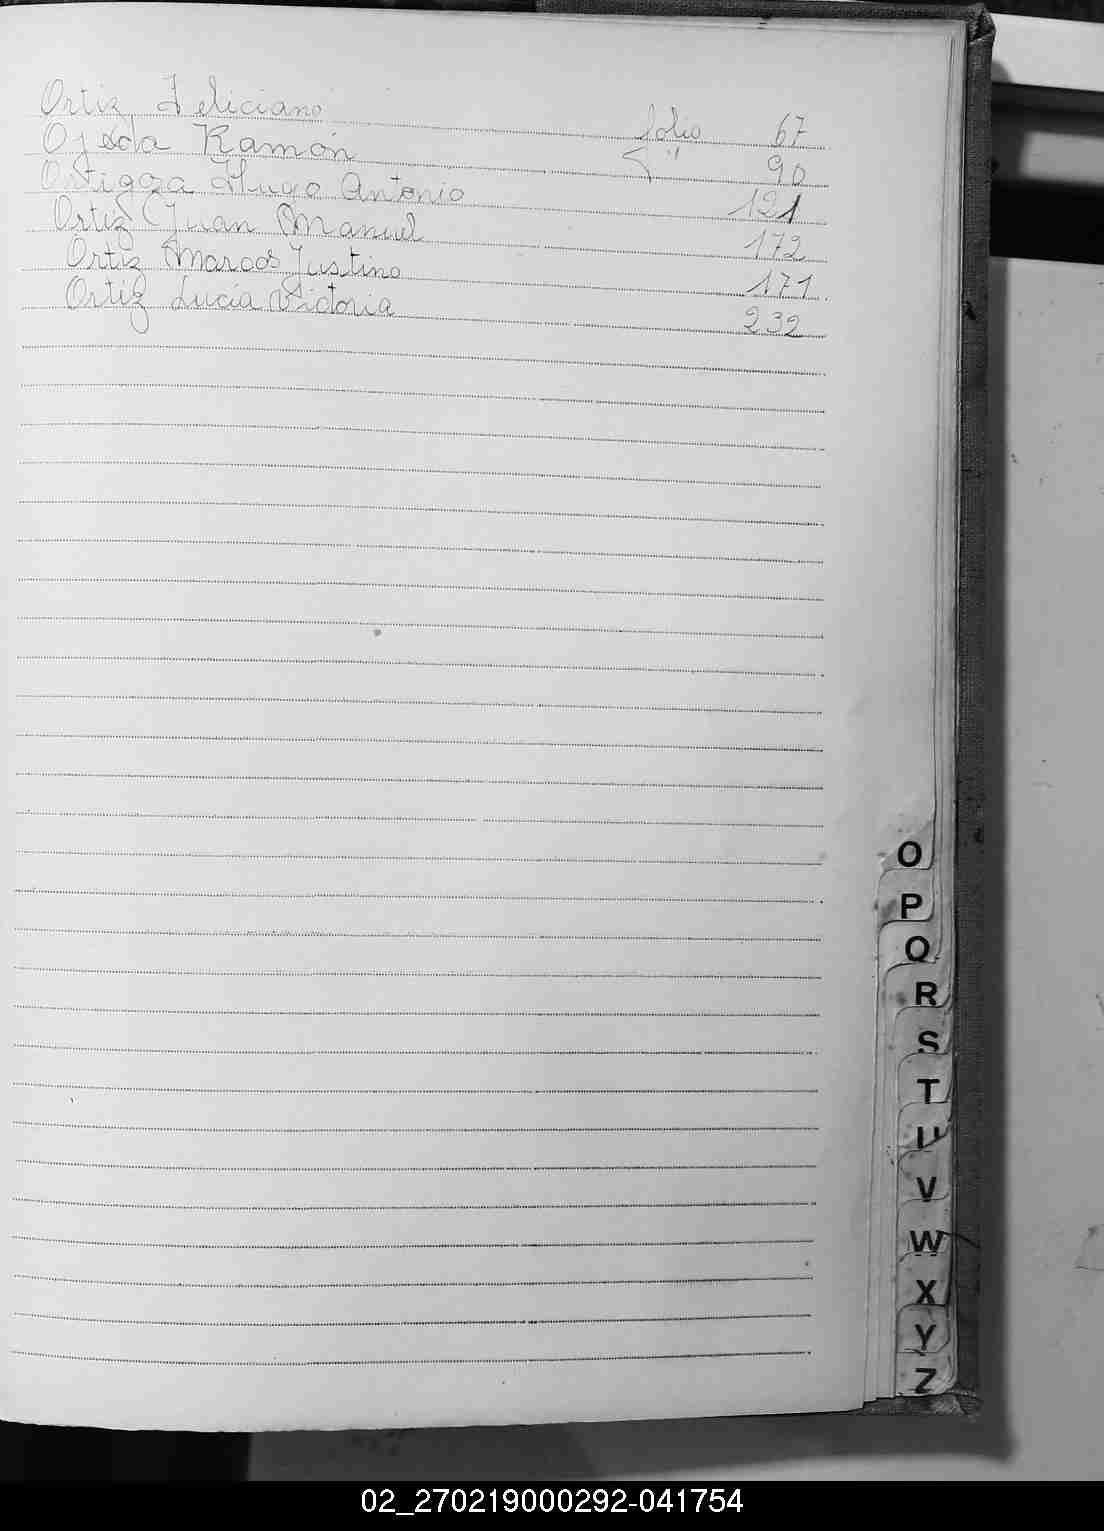 Ortiz Feliciano folio 67
Ojeda Ramón " 90
Ostigza Hugo Antonio 121
Ortiz Juan Manuel 172
Ortiz Marcos Justino 171.
Ortiz Lucía Victoria 232
O
P
Q
R
S
T
U
V
W
X
Y
Z
02_270219000292-041754